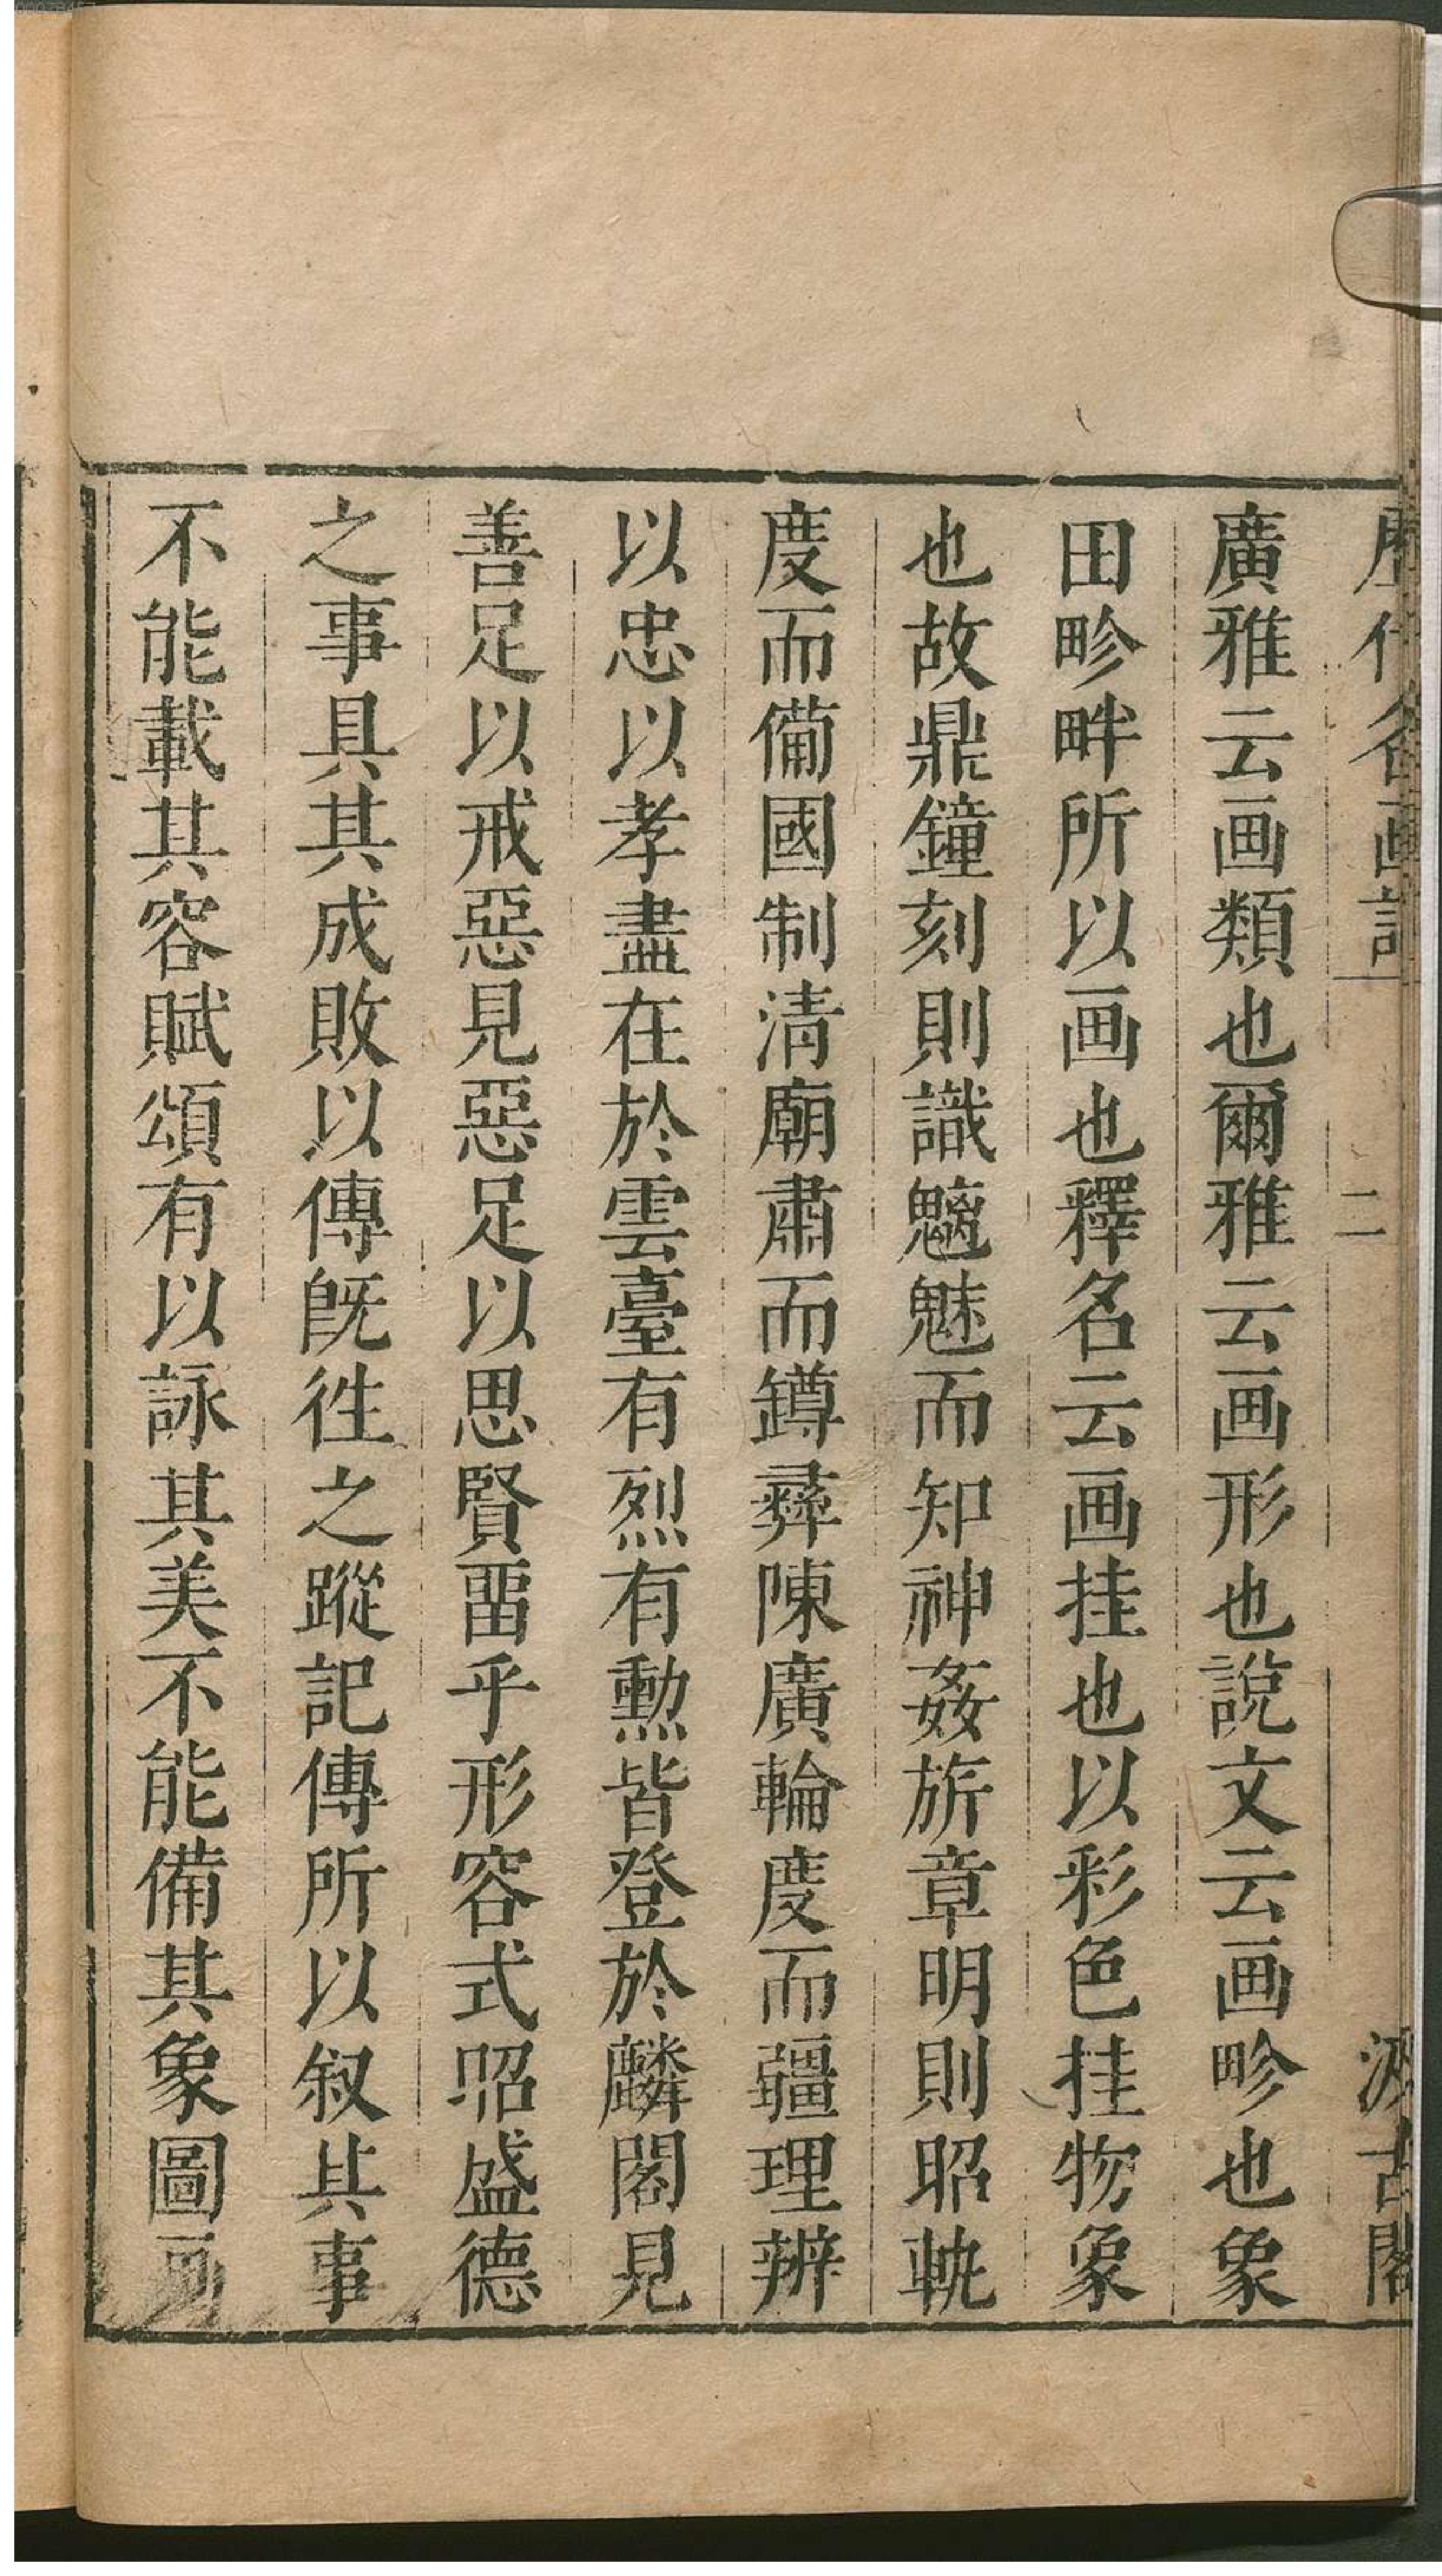 歷代名画記
二
汲古閣
廣雅云画類也爾雅云画形也說文云画畛也象
田畛畔所以画也釋名云画挂也以彩色挂物象
也故鼎鐘刻則識魑魅而知神姦旂章明則昭軌
度而備國制清廟肅而罇彞陳廣輪度而疆理辨
以忠以孝盡在於雲臺有烈有勳皆登於麟閣見
善足以戒惡見惡足以思賢畱乎形容式昭盛德
之事具其成敗以傳旣徃之蹤記傳所以叙其事
不能載其容賦頌有以詠其美不能備其象圖画